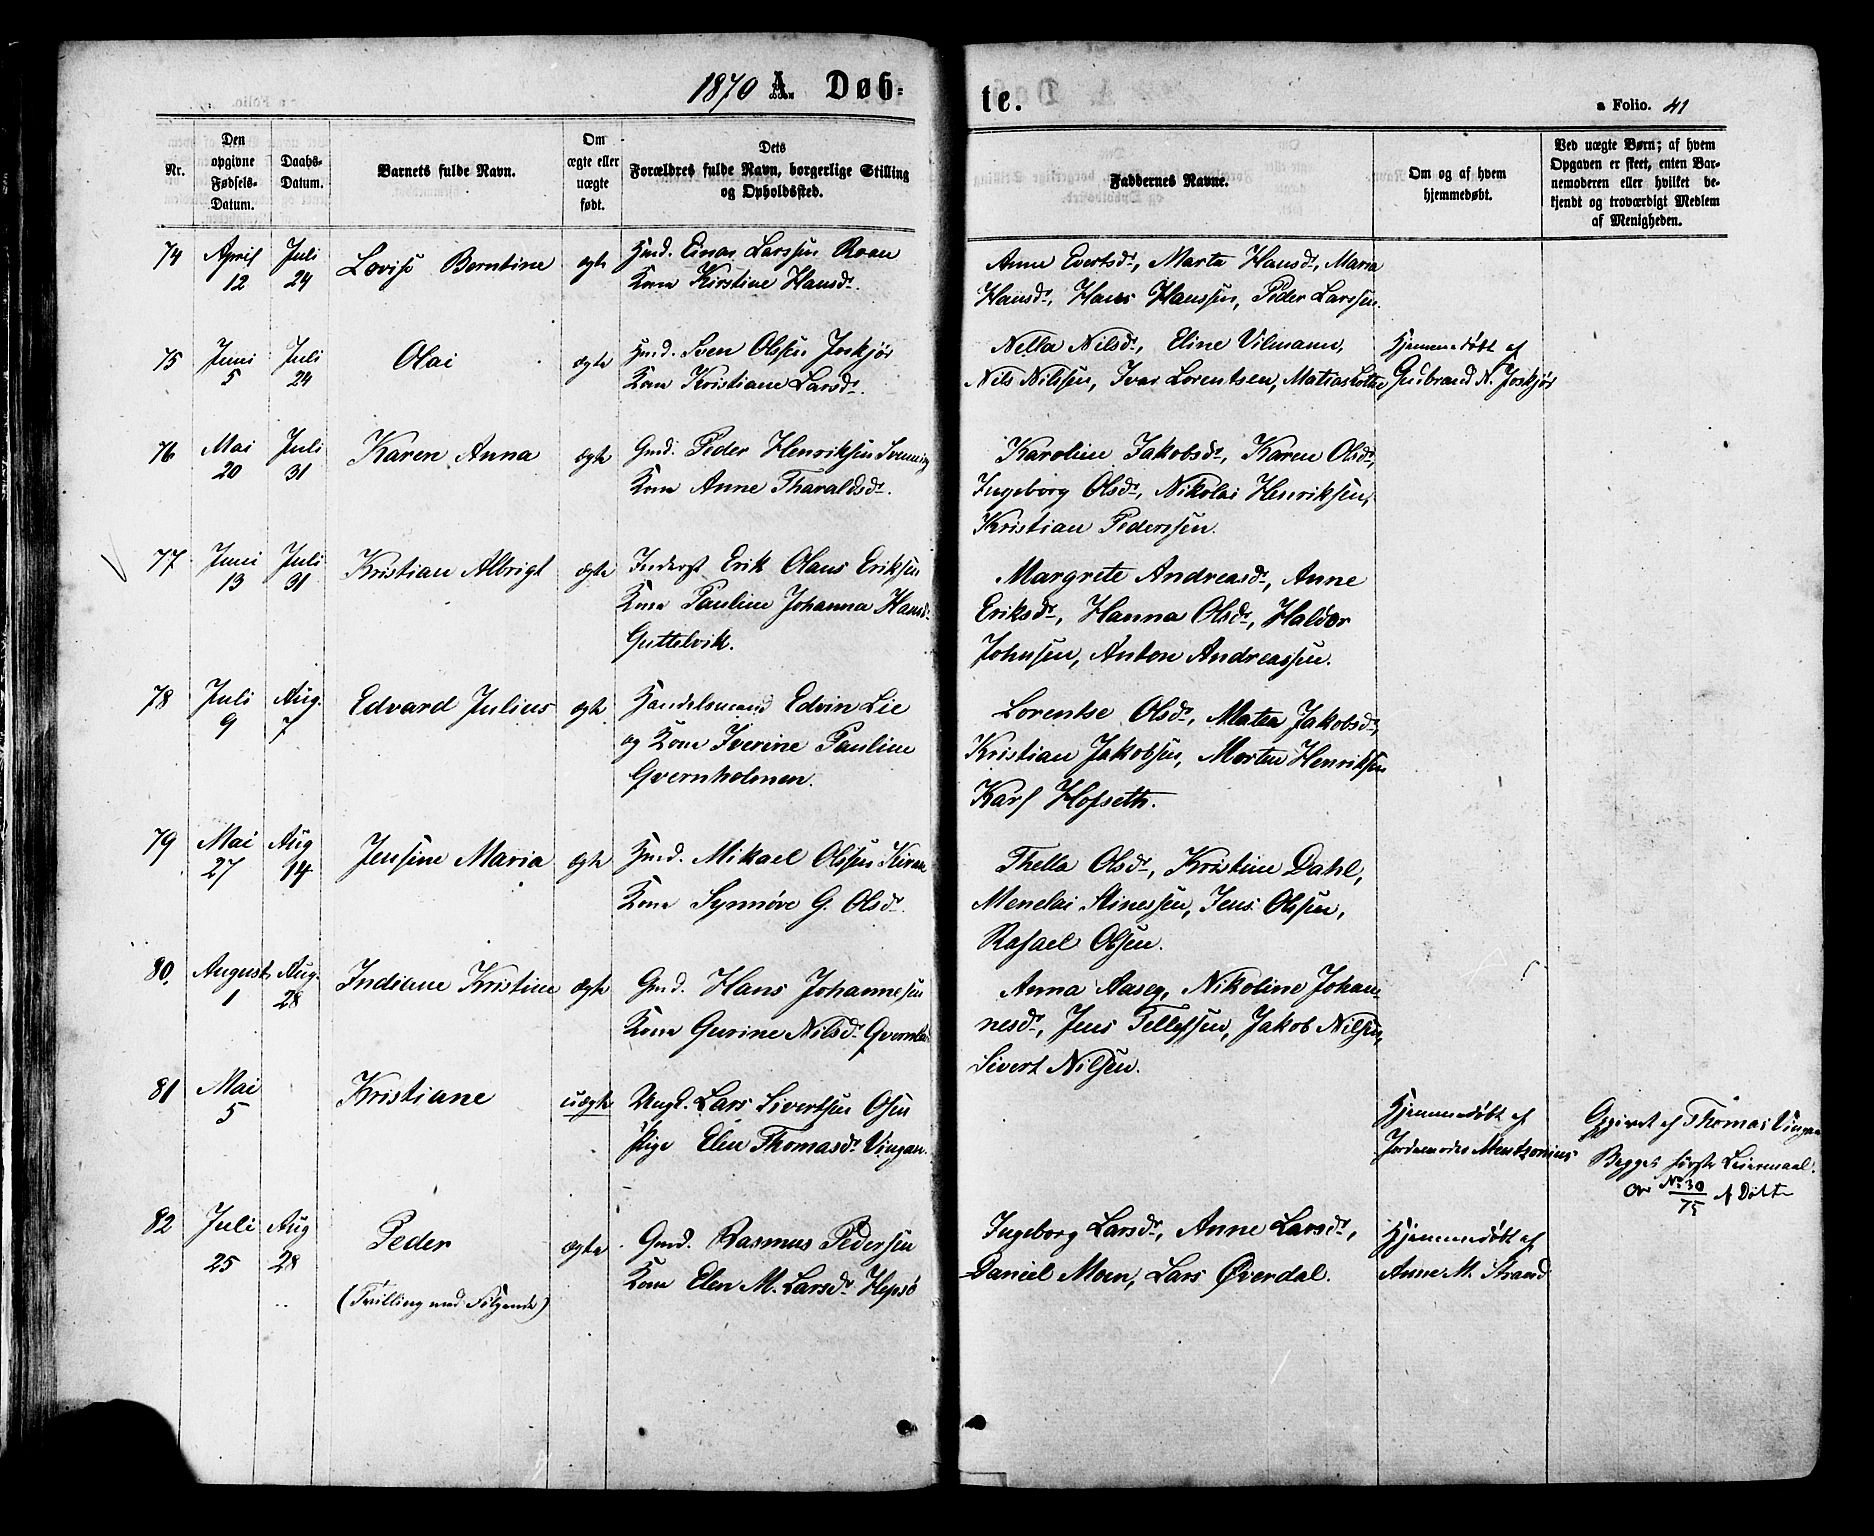 1870 A. Døb-
te.
a Folio. 41
Nr.
Den opgivne Fødsels-Datum.
Daabs-Datum.
Barnets fulde Navn.
Om ægte eller uægte født.
Dets Forældres fulde Navn, borgerlige Stilling og Opholdssted.
Faddernes Navne.
Om og af hvem hjemmedøbt.
Ved uægte Børn; af hvem Opgaven er skeet, enten Bar-nemoderen eller hvilket be-kjendt og troværdigt Medlem af Menigheden.
74 April 12 Juli 24 Lovise Berntine ægte
Gmd. Einar Larssen Roan
Kone Kirstine Hansdr.
Anne Evertsdr, Marta Hansdr, Maria
Hansdr, Hans Hanssen, Peder Larssen.
75 Juni 5 Juli 24 Olai ægte
Gmd. Sven Olssen Joskjør
Kone Kristiane Larsdr.
Nella Nilsdr, Eline Vilmann,
Nils Nilssen, Ivar Lorentsen, Matias Lothe
Hjemmedøbt af
Gudbrand N. Joskjør
76 Mai 20 Juli 31 Karen Anna ægte
Gmd. Peder Henriksen Svenning
Kone Anne Tharaldsdr.
Karoline Jakobsdr, Karen Olsdr,
Ingeborg Olsdr, Nikolai Henriksen,
Kristian Pederssen.
77 Juni 13 Juli 31 Kristian Albrigt ægte
Inderst Erik Olaus Eriksen
Kone Pauline Johanna Hansdr
Guttelvik.
Margrete Andreasdr, Anne
Eriksdr, Hanna Olsdr, Haldor
Johnsen, Anton Andreassen.
78 Juli 9 Aug. 7 Edvard Julius ægte
Handelsmand Edvin Lie
og Kone Iverine Pauline
Qvernholmen.
Lorentse Olsdr, Matea Jakobsdr,
Kristian Jakobsen, Morten Henriksen
Karl Hofseth.
79 Mai 27 Aug 14 Jensine Maria ægte
Gmd. Mikael Olssen Kiran
Kone Synnøve G. Olsdr.
Thella Olsdr, Kristine Dahl,
Menelai Stinessen, Jens Olssen,
Rafael Olsen.
80. August 1 Aug. 28 Indiane Kristine ægte
Gmd. Hans Johannesen
Kone Gurine Nilsdr
Anna Aaseg, Nikoline Johan-
nesdr, Jens Tellefsen, Jakob Nilsen,
Sivert Nilsen.
81 Mai 5 Kristiane uægte
Ungk. Lars Sivertsen Osen
Pige Elen Thomasdr Vingan.
Hjemmedøbt af
Jordemoder Mentzonius
Opgivet af Thomas Vingan
Begges første Leiermaal.
cfr No 30/75 Af Døbte
82 Juli 25 Aug 28 Peder ægte
(Tvilling med Følgende)
Gmd. Rasmus Pedersen
Kone Elen M. Larsdr Hepsø
Ingeborg Larsdr, Anne Larsdr,
Daniel Moen, Lars Øverdal.
Hjemmedøbt af
Anne M. Strand